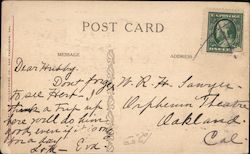 POST CARD
MESSAGE
ADDRESS
Dear Hubby.
Don't forget
to see Fien. I
think a trip up
here would do him
good, even if it's only
for a day.
Love Eva
W. R. H. Sawyer
Orpheum Theatre
Oakland
Cal